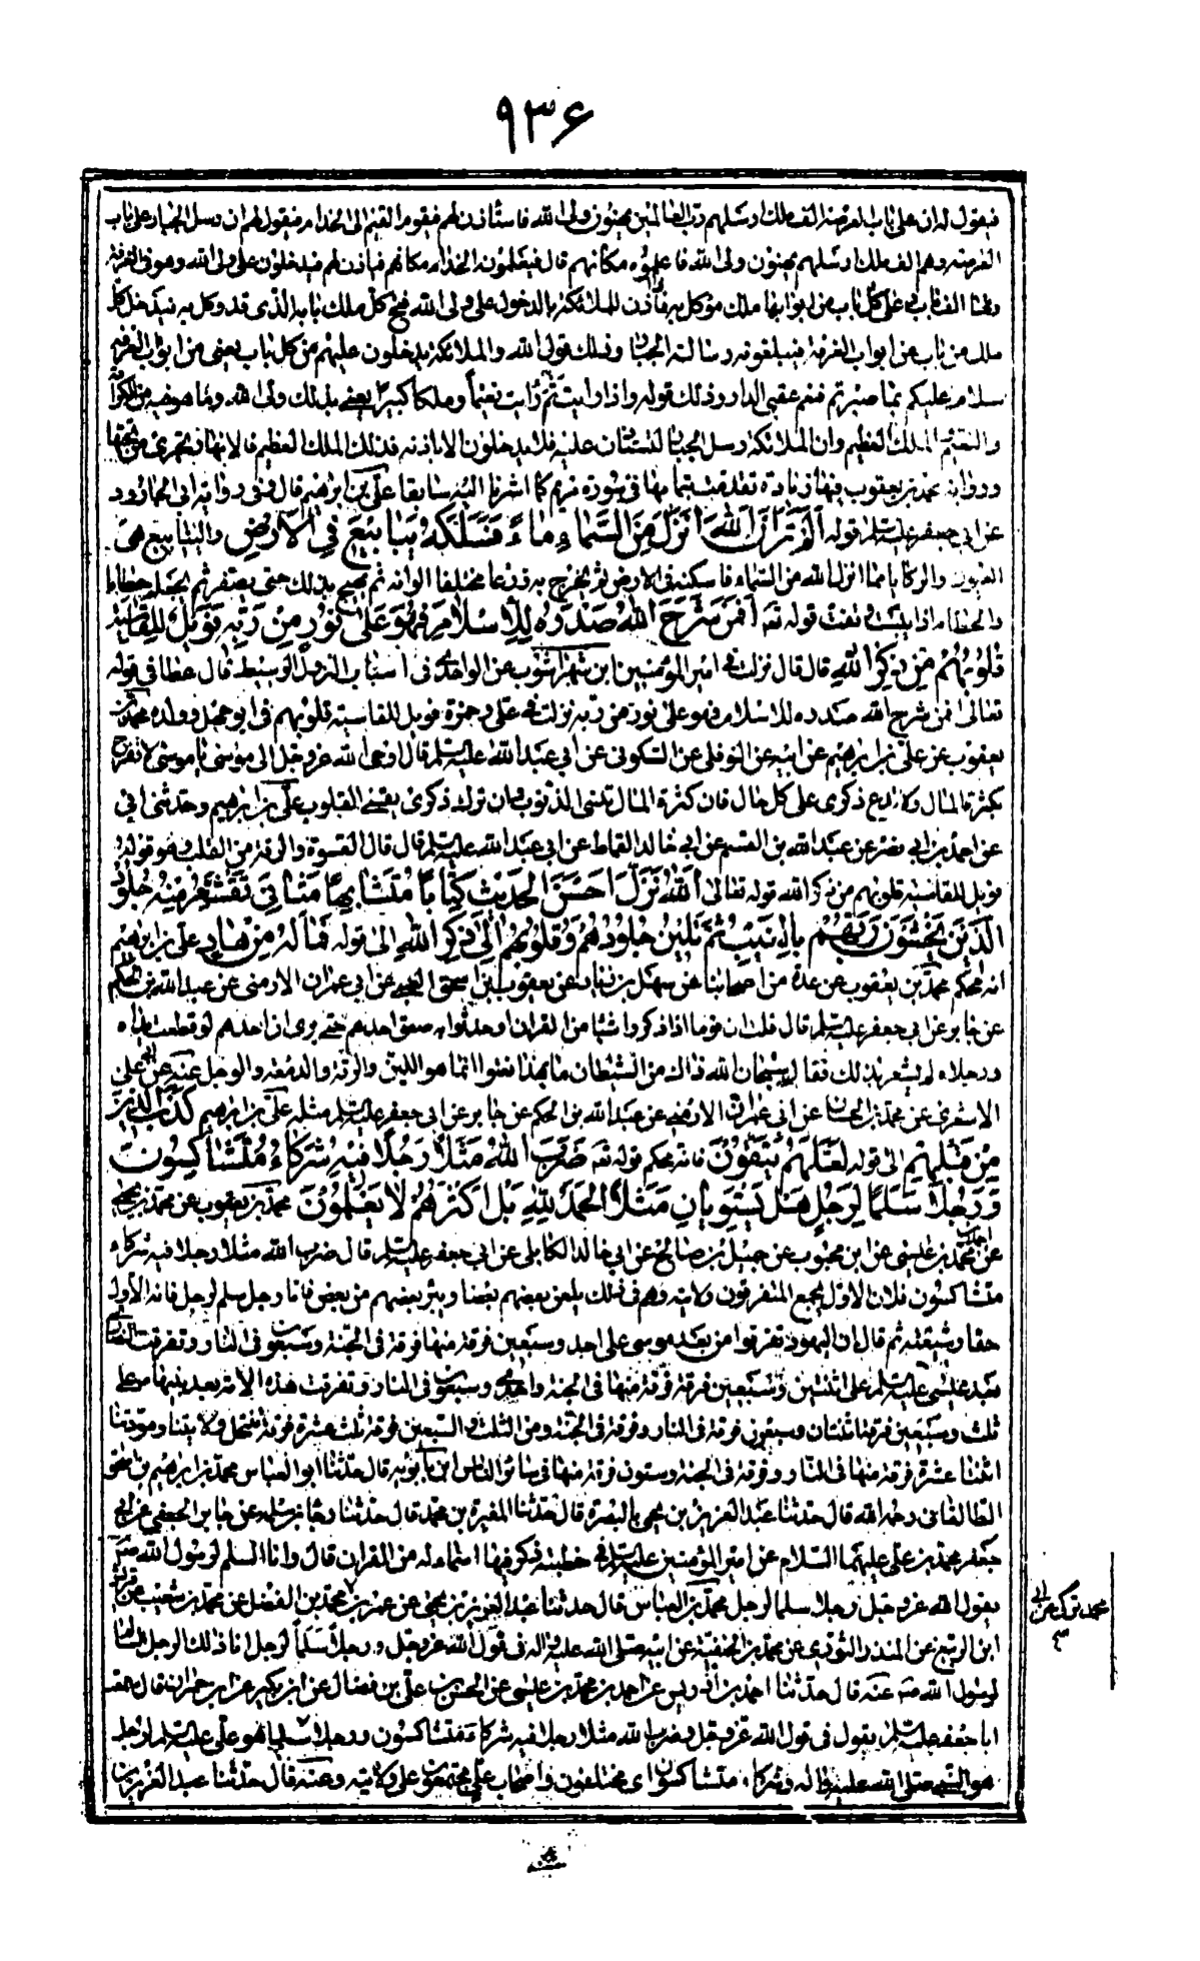 ٩٣۶
فيقول له ان على باب الغرفة الف ملك ارسلهم رب العالمين يهنون ولى الله فاستأذن لهم فيقوم القيم الى الخدام فيقول لهم ان رسل الجبار على باب
الغرفة وهم الف ملك ارسلهم يهنون ولى الله فاعلموه مكانهم قال فيعلمونه الخدام مكانهم فياذن لهم فيدخلون على ولى الله وهو فى الغرفة
ولها الف باب على كل باب من ابوابها ملك موكل به فاذا اذن للملائكة بالدخول على ولى الله فتح كل ملك بابه الذى قد وكل به فيدخل كل
ملك من باب من ابواب الغرفة فيبلغونه رسالة الجبار وذلك قول الله والملائكة يدخلون عليهم من كل باب يعنى من ابواب الغرفة
سلام عليكم بما صبرتم فنعم عقبى الدار وذلك قوله واذا رايت ثم رايت نعيماً وملكا كبيرا يعنى بذلك ولى الله وما هو فيه من الكرامة
والنعيم الملك العظيم وان الملائكة رسل الجبار ليستاذنون عليه فلا يدخلون الا باذنه فذلك الملك العظيم قال الانهار تجرى من تحتها
ورواية محمد بن يعقوب فيها زيادة تقدمت بتمامها فى سورة مريم كما اشرنا اليه سابقا على بن ابراهيم قال وفى رواية ابى الجارود
عن ابي جعفر عليه السلم قوله اَلَمْ تَرَ اَنَّ اللهَ اَنْزَلَ مِنَ السَّماءِ ماءً فَسَلَكَهُ يَنابيعَ فِي الْاَرْضِ والينابيع هى
العيون والركايا مما انزل الله من السماء فاسكنه فى الارض ثم يخرج به زرعا مختلفا الوانه ثم يهيج بذلك حتى يصفر ثم يجعله حطاما
والحطام اذا يبست وتفتت قوله تع اَفَمَنْ شَرَحَ اللهُ صَدْرَهُ لِلْاِسْلامِ فَهُوَ عَلى نُورٍ مِنْ رَبِّهِ فَوَيْلٌ لِلْقاسِيَةِ
قُلُوبُهُمْ مِنْ ذِكْرِ اللهِ قال قال نزلت فى امير المؤمنين ابن شهراشوب عن الواحدى فى اسباب النزول والوسيط قال عطا فى قوله
تعالى افمن شرح الله صدره للاسلام فهو على نور من ربه نزلت فى على وحمزة فويل للقاسية قلوبهم فى ابو جهل وولده محمد بن
يعقوب عن على بن ابراهيم عن ابيه عن النوفلى عن السكونى عن ابي عبد الله عليه السلم قال اوحى الله عز وجل الى موسى يا موسى لا تفرح
بكثرة المال ولا تدع ذكرى على كل حال فان كثرة المال تنسى الذنوب وان ترك ذكرى يقسى القلوب على بن ابراهيم وحدثنى ابي
عن احمد بن ابي نصر عن عبد الله بن القسم عن ابي خالد القماط عن ابي عبد الله عليه السلم قال قال القسوة والرقة من القلب وهو قوله
فويل للقاسية قلوبهم من ذكر الله قوله تعالى اَللهُ نَزَّلَ اَحْسَنَ الْحَديثِ كِتاباً مُتَشابِهاً مَثانِيَ تَقْشَعِرُّ مِنْهُ جُلُودُ
الَّذينَ يَخْشَوْنَ رَبَّهُمْ بالغيب ثُمَّ تَلينُ جُلُودُهُمْ وَقُلُوبُهُمْ اِلى ذِكْرِ اللهِ الى قوله فَمالَهُ مِنْ هادٍ على بن ابرهيم
انه محكم محمد بن يعقوب عن عدة من اصحابنا عن سهل بن زياد عن يعقوب بن اسحق الضبى عن ابي عمران الارمنى عن عبد الله بن الحكم
عن جابر عن ابي جعفر عليه السلم قال قلت ان قوما اذا ذكروا شيئا من القران او حدثوا به صعق احدهم حتى يرى ان احدهم لو قطعت يداه
ورجلاه لم يشعر بذلك فقال سبحان الله ذاك من الشيطان ما بهذا نعتوا انما هو اللين والرقة والدمعة والوجل عنه عن ابي على
الاشعرى عن محمد بن حسان عن ابي عمران الارمنى عن عبد الله بن الحكم عن جابر عن ابي جعفر عليه السلم مثله على بن ابرهيم كَذَّبَ الَّذينَ
مِنْ قَبْلِهِمْ الى قوله لَعَلَّهُمْ يَتَّقُونَ فانه محكم قوله تع ضَرَبَ اللهُ مَثَلاً رَجُلاً فيهِ شُرَكاءُ مُتَشاكِسُونَ
وَرَجُلاً سَلَماً لِرَجُلٍ هَلْ يَسْتَوِيانِ مَثَلاً الْحَمْدُ لِلّهِ بَلْ اَكْثَرُهُمْ لا يَعْلَمُونَ محمد بن يعقوب عن محمد بن يحيى
عن احمد بن محمد بن عيسى عن ابن محبوب عن جميل بن صالح عن ابي خالد الكابلى عن ابي جعفر عليه السلم قال ضرب الله مثلا رجلا فيه شركاء
متشاكسون فلان الاول يجمع المتفرقون ولايته وهم فى ذلك يلعن بعضهم بعضا ويبرء بعضهم من بعض فاما رجل سلم لرجل فانه الاول
حقا وشيعته ثم قال ان اليهود تفرقوا من بعد موسى على احد وسبعين فرقة منها فرقة فى الجنة وسبعون فى النار وتفرقت النصارى
بعد عيسى عليه السلم على اثنتين وسبعين فرقة فرقة منها فى الجنة واحدى وسبعون فى النار وتفرقت هذه الامة بعد نبيها ص على
ثلث وسبعين فرقة اثنتان وسبعون فرقة فى النار وفرقة فى الجنة ومن الثلث والسبعين فرقة ثلث عشرة فرقة تنتحل ولايتنا ومودتنا
اثنتا عشرة فرقة منها فى النار وفرقة فى الجنة وستون فرقة منها فى سائر الناس ابن بابويه قال حدثنا ابو العباس محمد بن ابرهيم بن اسحق
الطالقانى رحمه الله قال حدثنا عبد العزيز بن يحيى بالبصرة قال حدثنا المغيرة بن محمد قال حدثنا رجاء بن سلمة عن جابر الجعفى عن ابي
جعفر محمد بن على عليهما السلام عن امير المؤمنين عليه السلم فى خطبته ذكر فيها اسماء له من القران قال وانا السلم لرسول الله ص
يقول الله عز وجل ورجلا سلما لرجل محمد بن العباس قال حدثنا عبد العزيز بن يحيى عن عمرو بن محمد بن الفضل عن محمد بن شعيب عن قيس
ابن الربيع عن المنذر الثورى عن محمد بن الحنفية عن ابيه صلى الله عليه واله فى قول الله عز وجل ورجلا سلماً لرجل انا ذلك الرجل السالم
لرسول الله ص عنه قال حدثنا احمد بن ادريس عن احمد بن محمد بن عيسى عن الحسن بن على بن فضال عن ابن بكير عن حمران قال سمعت
ابا جعفر عليه السلم يقول فى قول الله عز وجل وضرب الله مثلا رجلا فيه شركاء متشاكسون ورجلا سلما هو على عليه السلم لرجل
هو النبى صلى الله عليه واله وشركاء متشاكسون اى مختلفون واصحاب على مجتمعون على ولايته وعنه قال حدثنا عبد العزيز بن